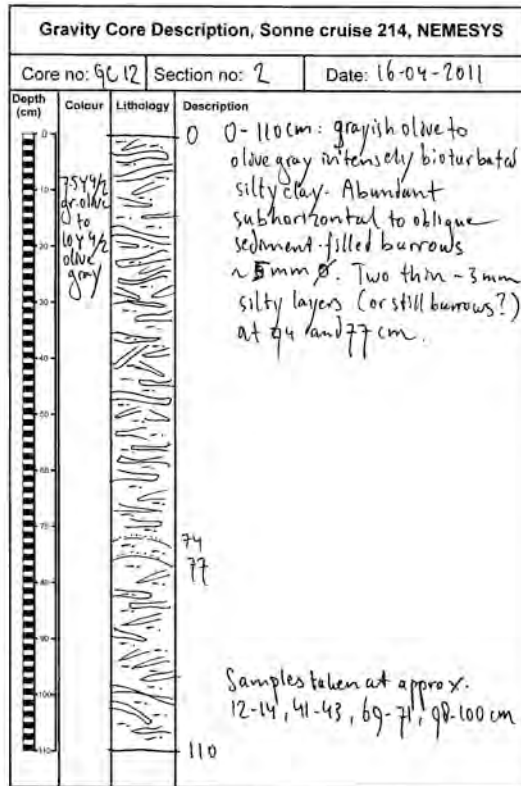 Gravity Core Description, Sonne cruise 214, NEMESYS
Core no: GC 12 Section no: 2 Date: 16-04-2011
Depth (cm) Colour Lithology Description
0
10
20
30
40
50
60
70
80
90
100
110
7.5Y4/2
gr. olive
to
10Y4/2
olive
gray
0
0-110cm: grayish olive to
olive gray intensely bioturbated
silty clay. Abundant
subhorizontal to oblique
sediment-filled burrows
~5mm ø. Two thin ~3mm
silty layers (or still burrows?)
at 74 and 77 cm.
74
77
Samples taken at approx.
12-14, 41-43, 69-71, 98-100 cm
110